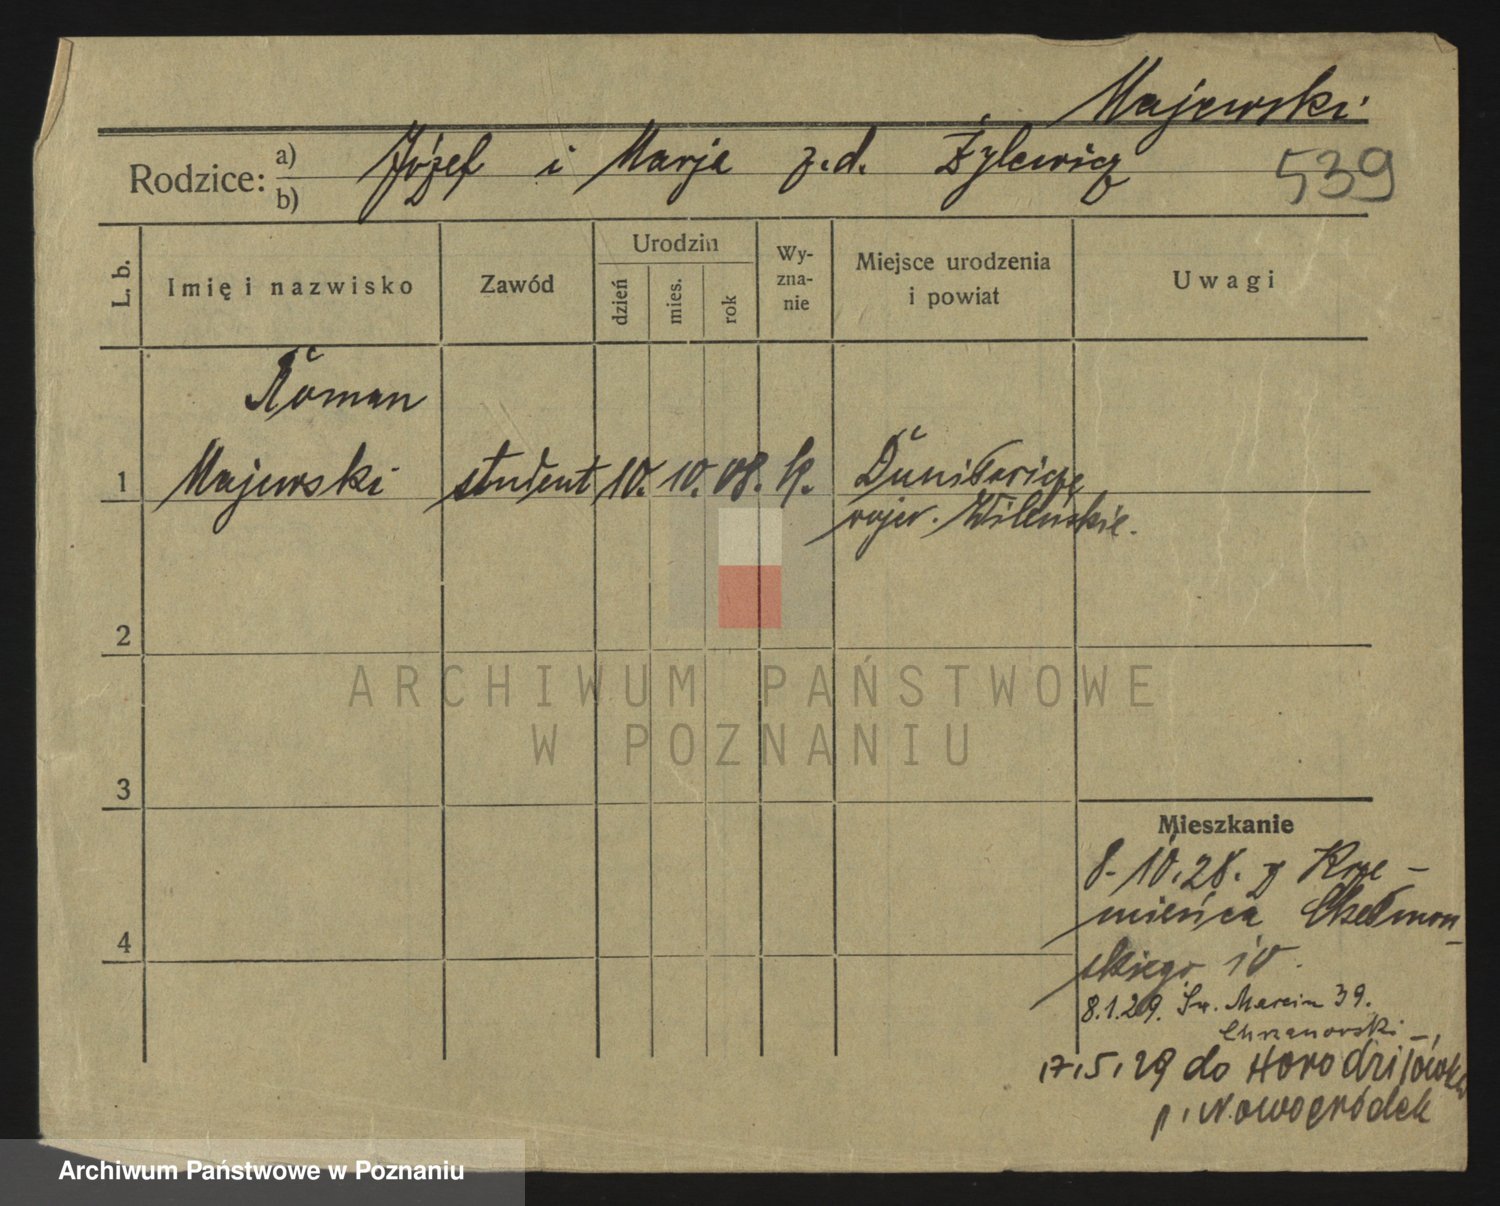 Majewski
Rodzice: a) b) Józef i Marja z.d. Żylewicz
539
L. b.
Imię i nazwisko
Zawód
Urodzin
dzień
mies.
rok
Wy-
zna-
nie
Miejsce urodzenia
i powiat
Uwagi
Roman
1 Majewski student 10. 10. 08. k. Duniłowicze
wojew. Wileńskie.
2
3
4
Mieszkanie
8.10.28. z Krze-
mieńca Chełmoń-
skiego 10.
8.1.29. Św. Marcin 39.
Chrzanowski
17.5.29 do Horodzijówka
p. Nowogródek
ARCHIWUM PAŃSTWOWE
W POZNANIU
Archiwum Państwowe w Poznaniu